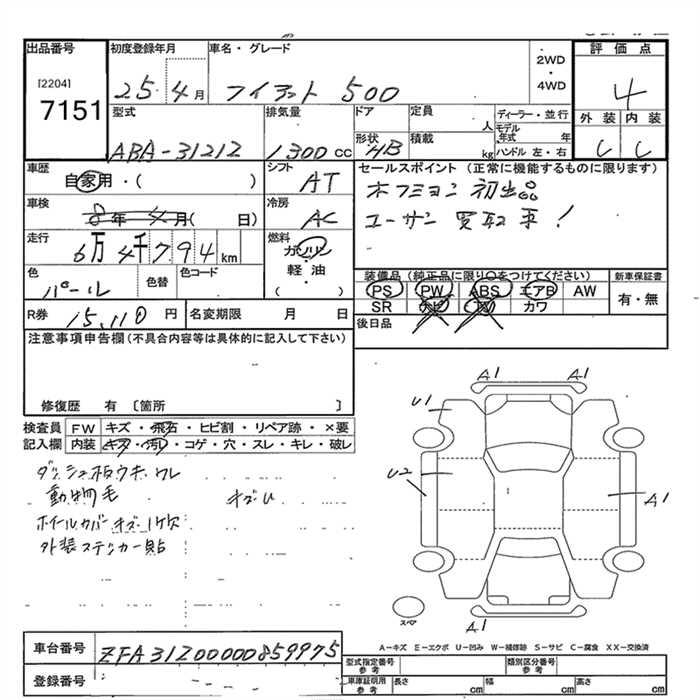 出品番号 初度登録年月 車名・グレード 評価点
[2204] 7151 25年4月 フィアット 500 2WD・4WD 4
型式 排気量 ドア 定員 人 ディーラー・並行 外装 内装
ABA-31212 1300cc 形状 4B 積載 kg モデル年式 年 ハンドル 左・右 C C
車歴 自家用・( ) シフト AT セールスポイント(正常に機能するものに限ります)
車検 8年4月( 日) 冷房 AC 初出品
走行 6万4千794km 燃料 ガソリン・軽油( ) ユーザー買取車!
色 パール 色替 色コード
装備品(純正品に限り○をつけてください) 新車保証書
PS PW ABS エアB AW 有・無
SR ナビ TV カワ
R券 15,110円 名変期限 月 日 後日品
注意事項申告欄(不具合内容等は具体的に記入して下さい)
修復歴 有〔箇所 〕
検査員記入欄 FW キズ・飛石・ヒビ割・リペア跡・×要
内装 キズ・汚れ・コゲ・穴・スレ・キレ・破レ
ダッシュ板ウキ、ワレ
動物毛 キズU
ホイールカバーキズ・1ケ欠
外装ステッカー貼
A1 A1
U1
U2
A1
A1
スペア
A-キズ E-エクボ U-凹み W-補修跡 S-サビ C-腐食 XX-交換済
車台番号 ZFA31200000859975
登録番号
型式指定番号参考 類別区分番号参考
車庫証明用参考 長さ cm 幅 cm 高さ cm